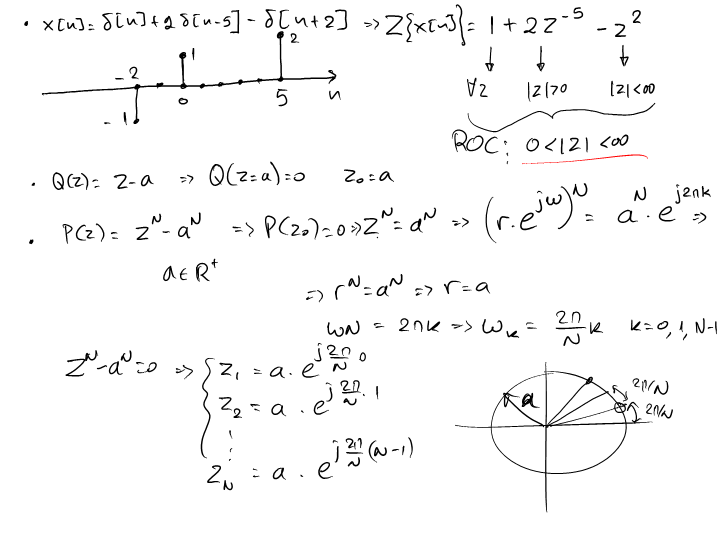 • x[n]= δ[n]+2δ[n-5] - δ[n+2] => Z{x[n]}= 1 + 2z^-5 - z^2
1 2
-2 0 5 n
-1
∀z |z|>0 |z|<∞
ROC: 0<|z|<∞
• Q(z)= z-a => Q(z=a)=0 z₀=a
• P(z)= z^N - a^N => P(z₀)=0 => z^N = a^N => (r.e^jω)^N = a^N . e^j2πk =>
a ∈ R^+
=> r^N = a^N => r=a
ωN = 2πk => ω_k = 2π/N k k=0, 1, N-1
z^N - a^N = 0 => { z₁ = a . e^j 2π/N 0
z₂ = a . e^j 2π/N . 1
⋮
z_N = a . e^j 2π/N (N-1)
a 2π/N
2π/N